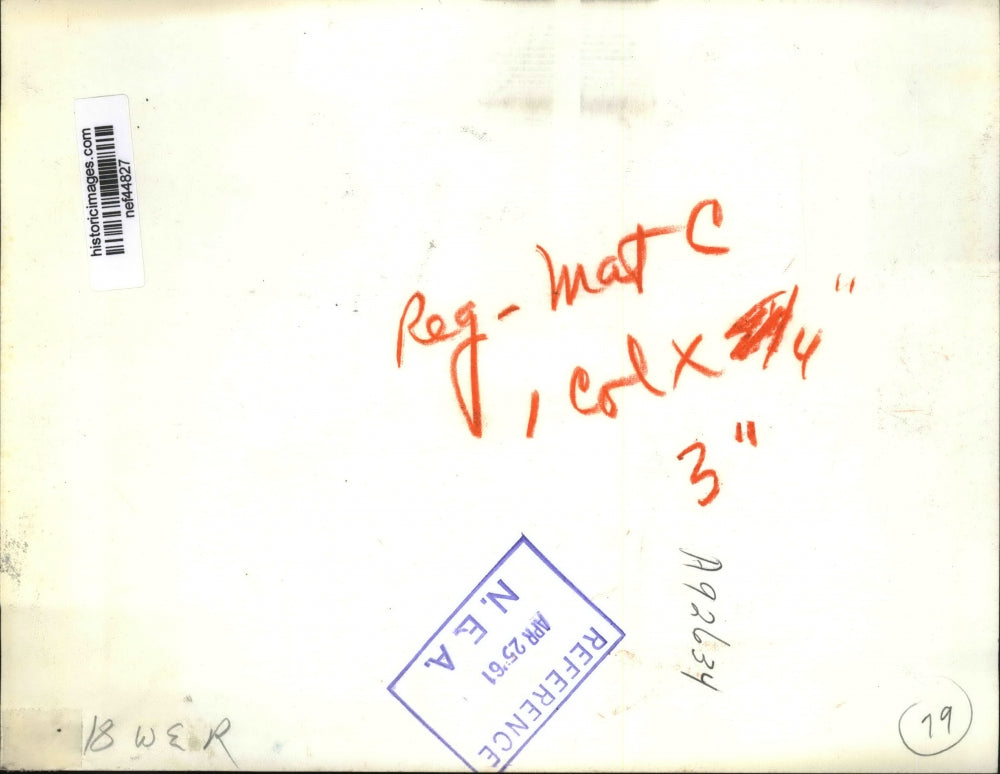 historicimages.com
nef44827
Reg - Mat C
1 Col X 4"
3"
A92634
REFERENCE
APR 25 '61
N. E. A.
18 W E R
79